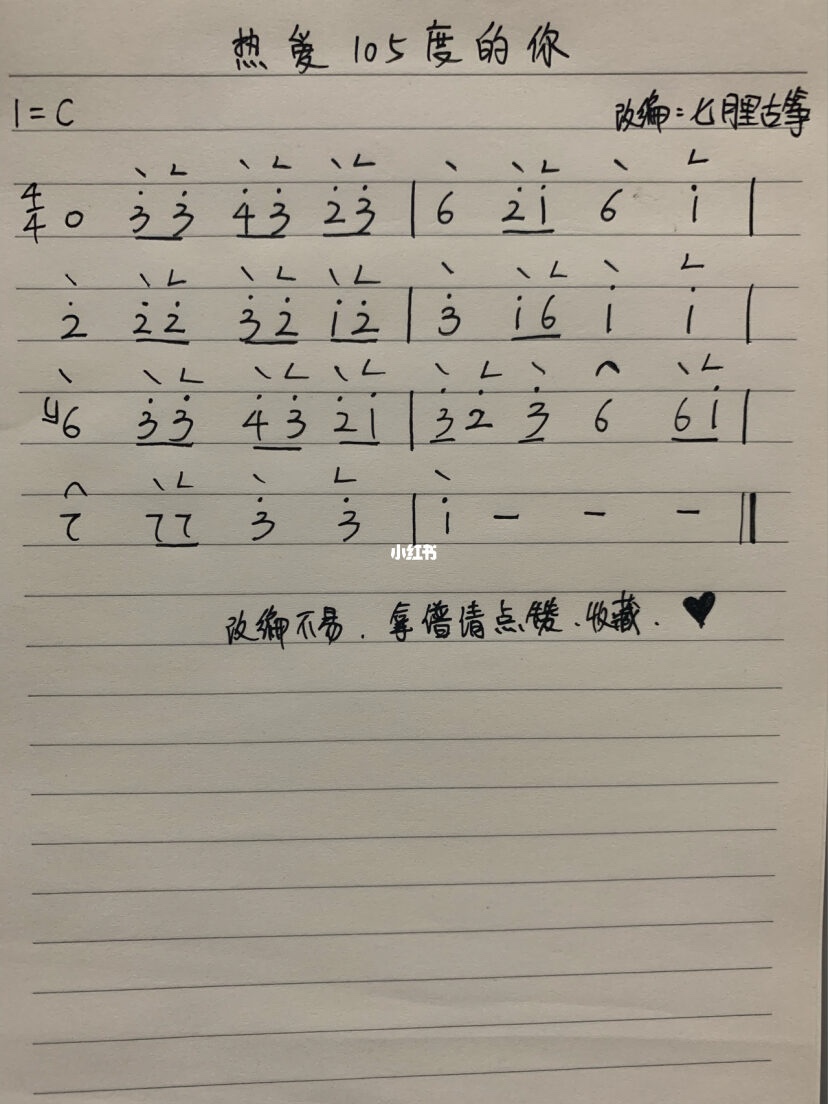 热爱105度的你
1=C 改编:七月里古筝
4/4 0 3̇3̇ 4̇3̇ 2̇3̇ | 6 2̇1̇ 6 1̇ |
2̇ 2̇2̇ 3̇2̇ 1̇2̇ | 3̇ 1̇6 1̇ 1̇ |
6 3̇3̇ 4̇3̇ 2̇1̇ | 3̇2̇ 3̇ 6 61̇ |
7 77 3̇ 3̇ | 1̇ - - - ||
小红书
改编不易.拿谱请点赞.收藏.♥